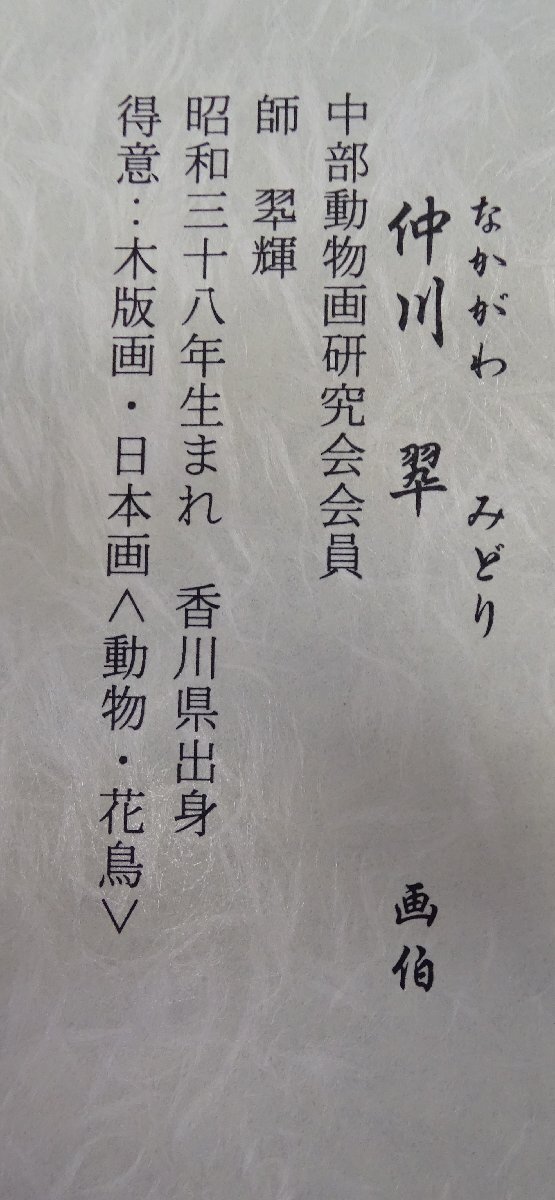 なかがわ みどり
仲川 翆 画伯
中部動物画研究会会員
師 翆輝
昭和三十八年生まれ 香川県出身
得意:木版画・日本画<動物・花鳥>